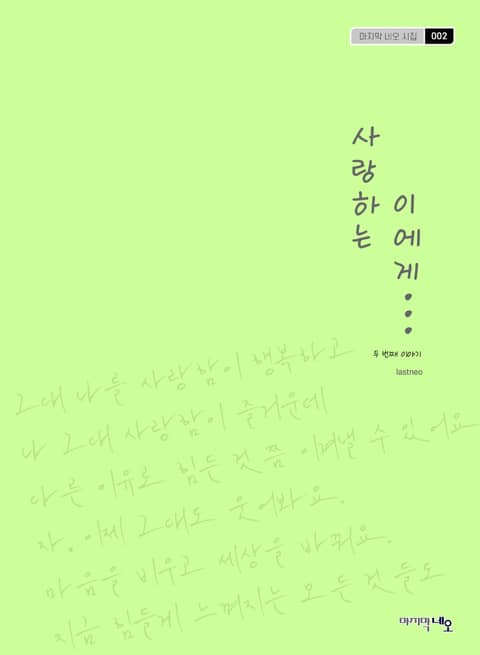 마지막 네오 시집 002
사랑하는
이에게...
두 번째 이야기
lastneo
그대 나를 사랑함이 행복하고
나 그대 사랑함이 즐거운데
다른 이유로 힘든 것 쯤 이겨낼 수 있어요
자. 이제 그대도 웃어봐요.
마음을 비우고 세상을 바꿔요.
지금 힘들게 느껴지는 모든 것들도
마지막 네오